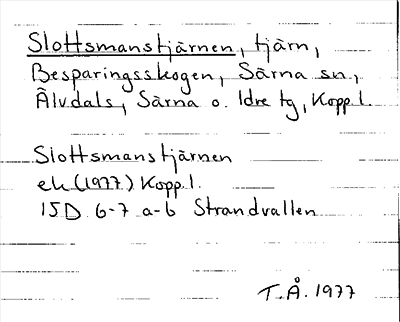 Slottsmanstjärnen, tjärn,
Besparingsskogen, Särna sn.,
Älvdals, Särna o. Idre tg, Kopp.l.
Slottsmanstjärnen
ek (1977) Kopp.l.
15D 6-7 a-b Strandvallen
T.Å. 1977